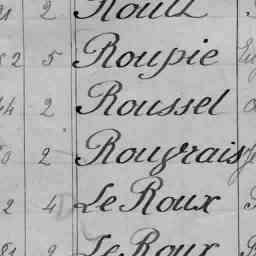 2 Roull
2 5 Roupie
44 2 Roussel
0 2 Rougrais
2 4 Le Roux
81 2 Le Roux